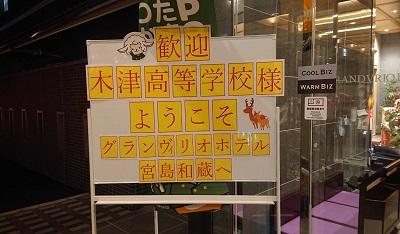 歓迎
木津高等学校様
ようこそ
グランヴィリオホテル
宮島和蔵へ
COOL BIZ
WARM BIZ